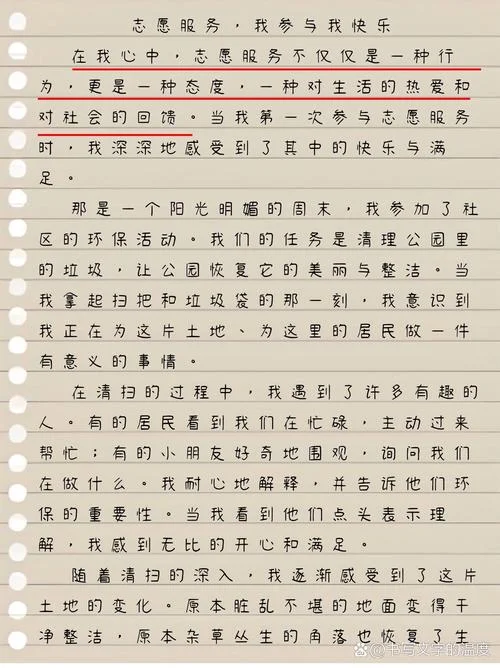 志愿服务，我参与我快乐
在我心中，志愿服务不仅仅是一种行
为，更是一种态度，一种对生活的热爱和
对社会的回馈。当我第一次参与志愿服务
时，我深深地感受到了其中的快乐与满
足。
那是一个阳光明媚的周末，我参加了社
区的环保活动。我们的任务是清理公园里
的垃圾，让公园恢复它的美丽与整洁。当
我拿起扫把和垃圾袋的那一刻，我意识到
我正在为这片土地、为这里的居民做一件
有意义的事情。
在清扫的过程中，我遇到了许多有趣的
人。有的居民看到我们在忙碌，主动过来
帮忙；有的小朋友好奇地围观，询问我们
在做什么。我耐心地解释，并告诉他们环
保的重要性。当我看到他们点头表示理
解，我感到无比的开心和满足。
随着清扫的深入，我逐渐感受到了这片
土地的变化。原本脏乱不堪的地面变得干
净整洁，原本杂草丛生的角落也恢复了生
书写文字的温度